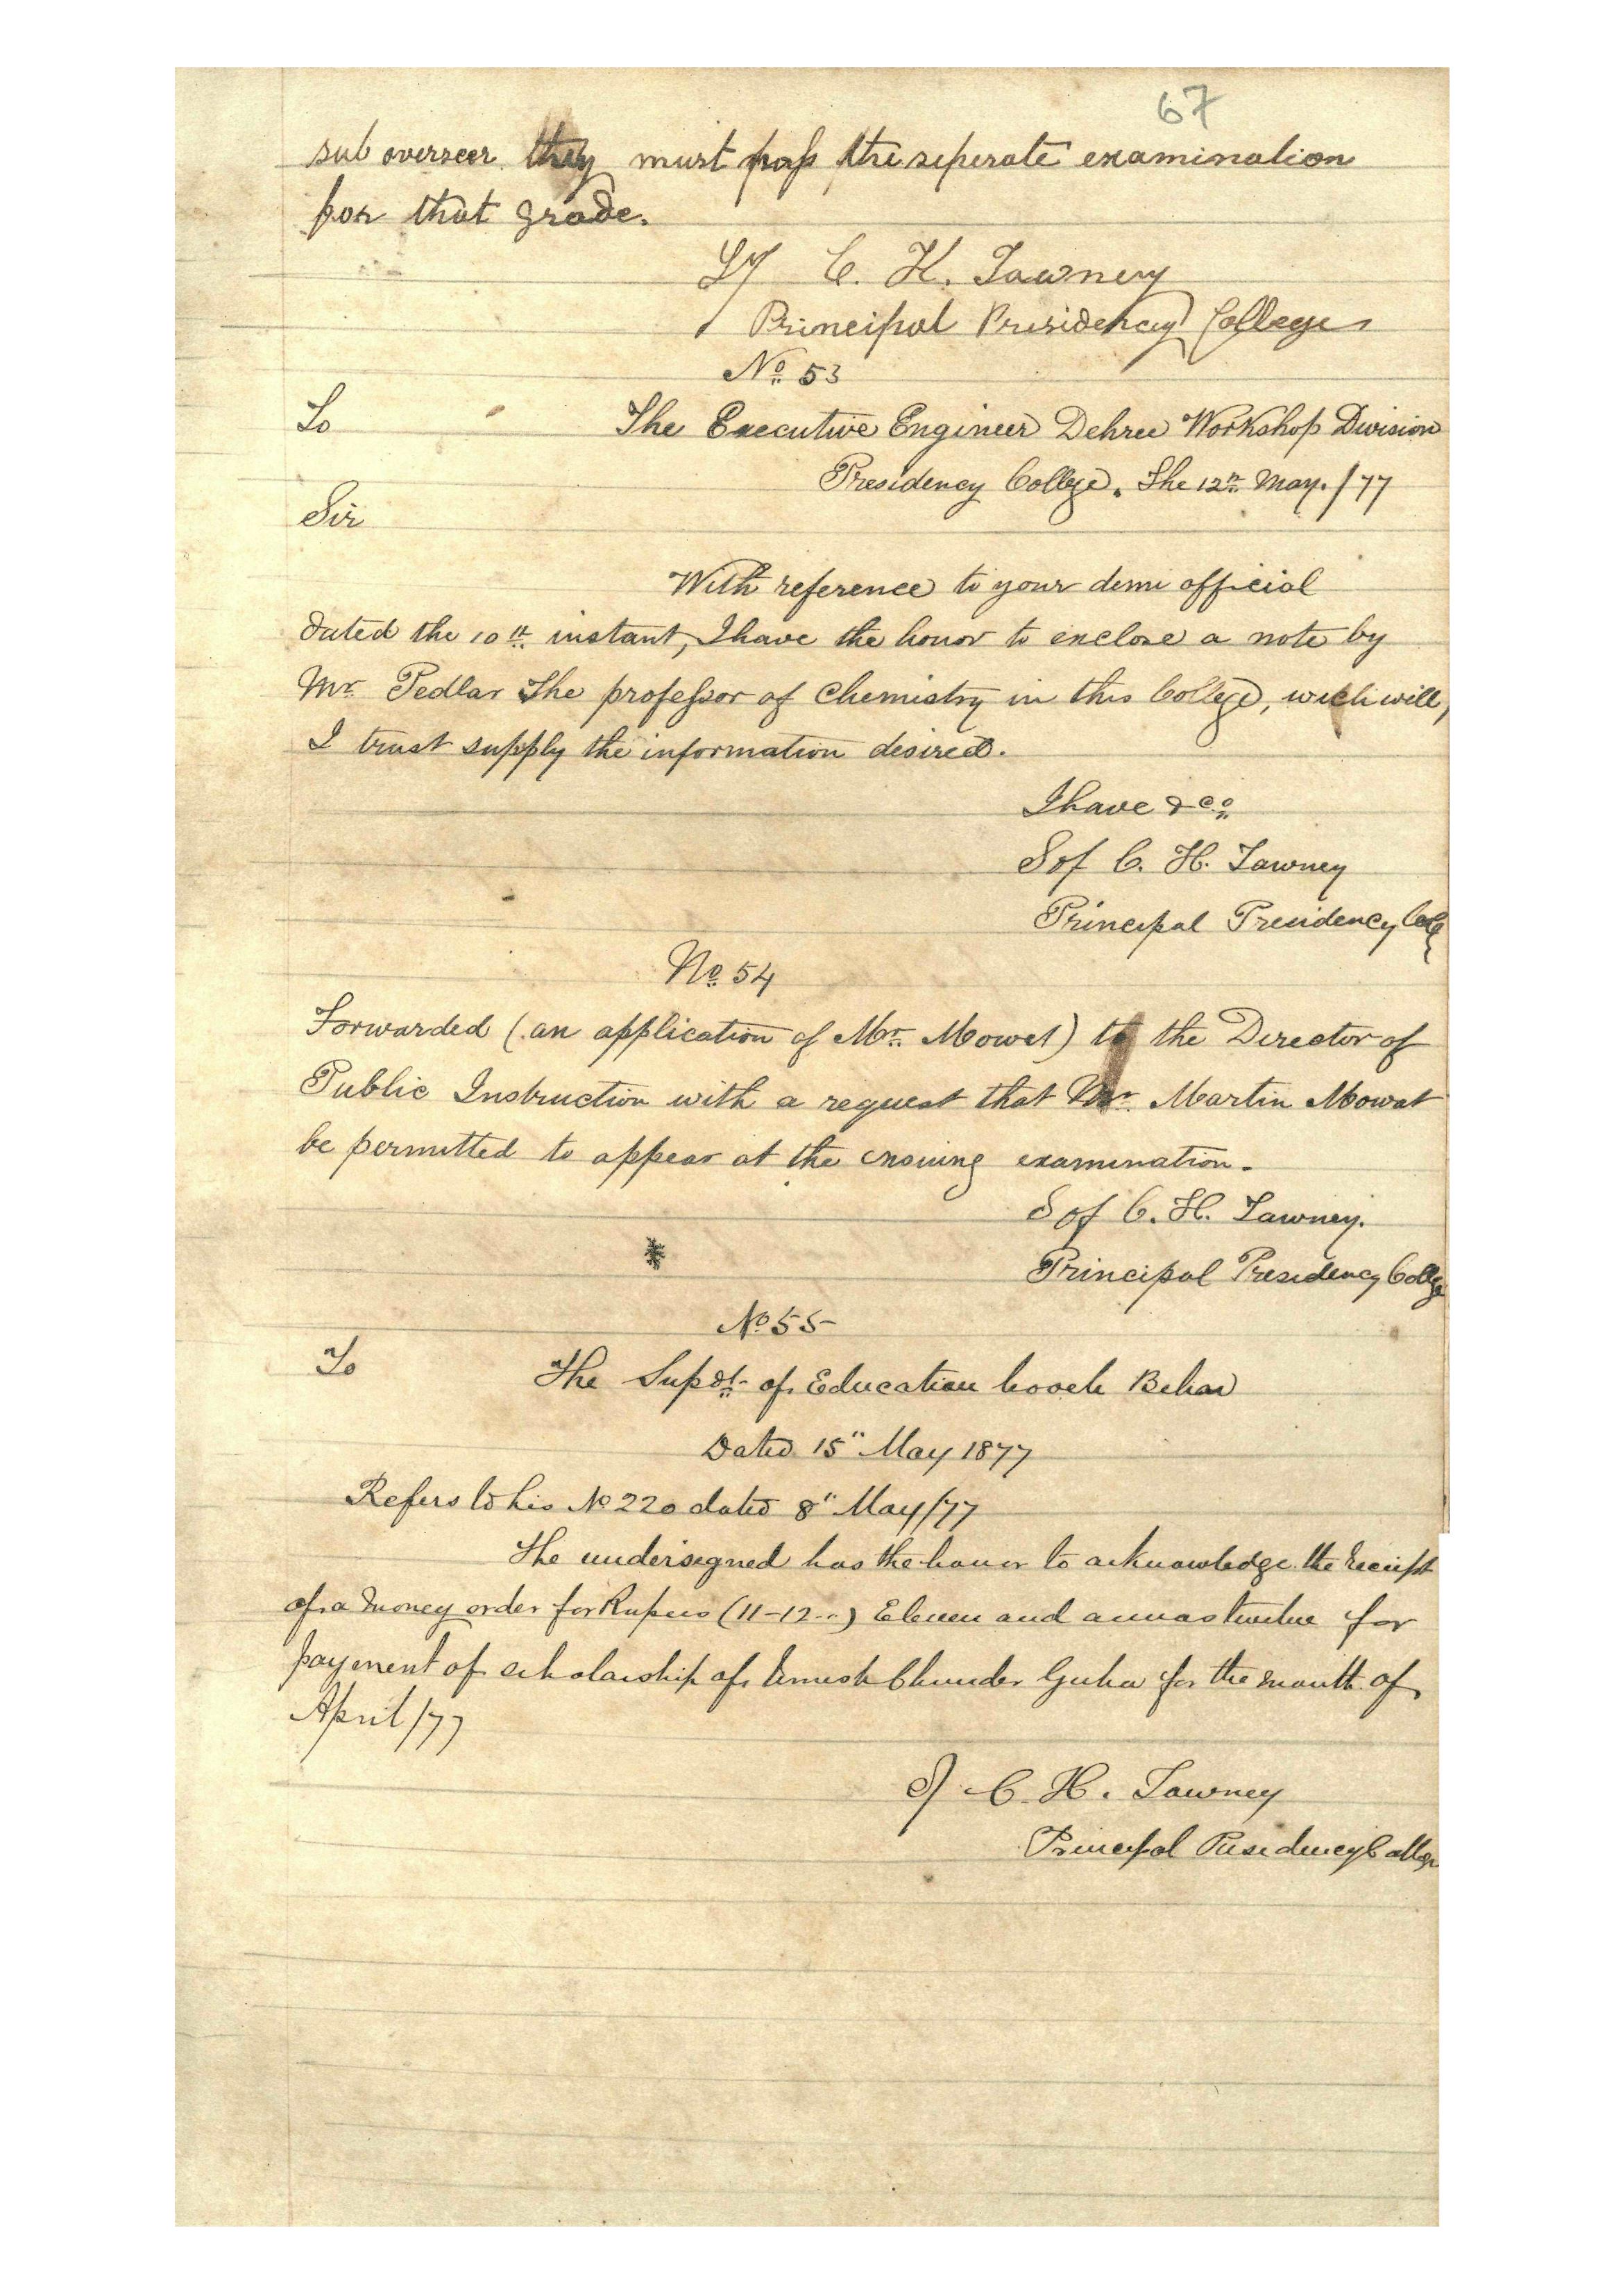 67
sub overseer they must pass the seperate examination
for that grade.
Sd/ C. H. Tawney
Principal Presidency College
No 53
To The Executive Engineer Dehree Workshop Division
Presidency College. The 12th May. /77
Sir
With reference to your demi official
dated the 10th instant, I have the honor to enclose a note by
Mr. Pedlar The professor of Chemistry in this College, wich will,
I trust supply the information desired.
I have &c.
Sd/ C. H. Tawney
Principal Presidency Coll
No 54
Forwarded (an application of Mr. Mowat) to the Director of
Public Instruction with a request that Mr. Martin Mowat
be permitted to appear at the ensuing examination.
Sd/ C. H. Tawney.
Principal Presidency College
No 55
To The Supdt. of Education Cooch Behar
Dated 15" May 1877
Refers to his No 220 dated 8" May/77
The undersigned has the honor to acknowledge the receipt
of a money order for Rupees (11-12..) Eleven and annas twelve for
payment of scholarship of Umesh Chunder Guha for the month of
April/77
Sd/ C. H. Tawney
Principal Presidency College